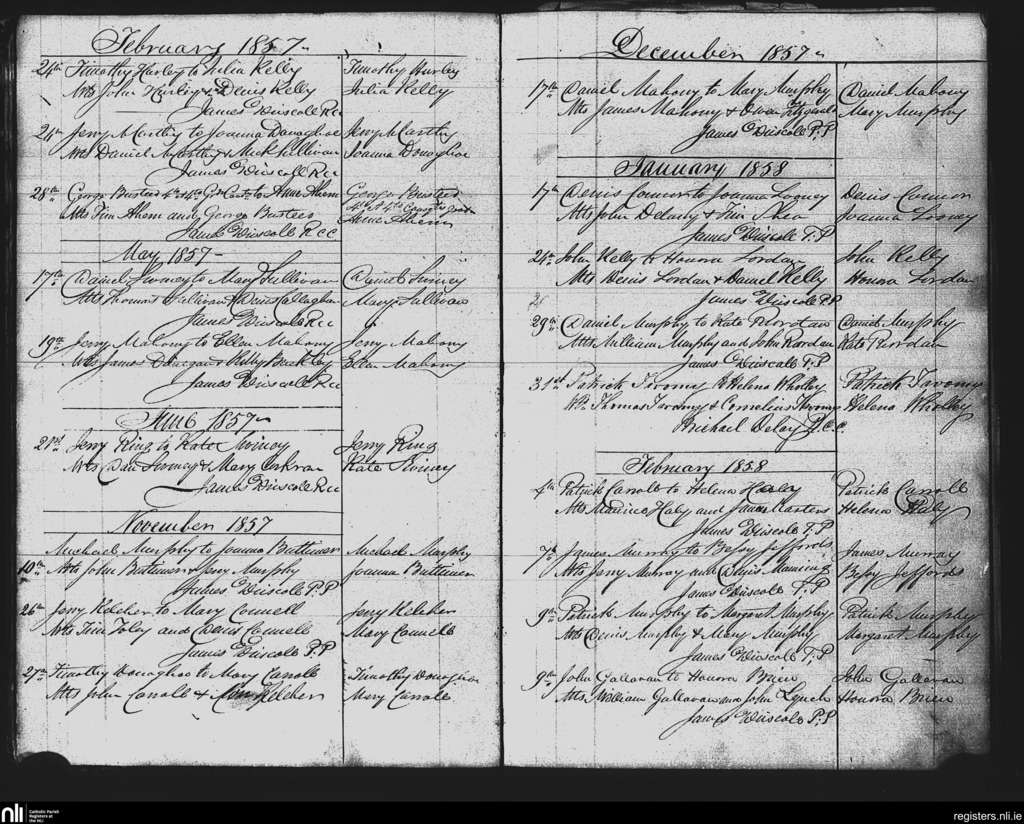 February 1857
24th Timothy Hurley to Julia Kelly Timothy Hurley
Wts John Hurley & Denis Kelly Julia Kelly
James Driscoll Rcc
24th Jerry McCarthy to Joanna Donaghoe Jerry McCarthy
Wts Daniel McCarthy & Mick Sullivan Joanna Donaghoe
James Driscoll Rcc
28th George Busteed 4th & 4th to Anne Ahern George Busteed
Wts Tim Ahern and George Busteed Anne Ahern
James Driscoll RCC
May 1857
17th Daniel Swiney to Mary Sullivan Daniel Swiney
Wts Thomas Sullivan & Denis Callaghan Mary Sullivan
James Driscoll Rcc
19th Jerry Mahony to Ellen Mahony Jerry Mahony
Wts James Donegan & Buckley Ellen Mahony
James Driscoll Rcc
June 1857
21st Jerry Ring to Kate Swiney Jerry Ring
Wts Dan Swiney & Mary Corkran Kate Swiney
James Driscoll Rcc
November 1857
Michael Murphy to Joanna Buttimer Michael Murphy
10th Wts John Buttimer & Jerry Murphy Joanna Buttimer
James Driscoll P.P
26th Jerry Kelcher to Mary Connell Jerry Kelcher
Wts Tim Foley and Denis Connell Mary Connell
James Driscoll P.P
27th Timothy Donaghoe to Mary Carroll Timothy Donaghoe
Wts John Carroll & Kelcher Mary Carroll
December 1857
17th Daniel Mahony to Mary Murphy Daniel Mahony
Wts James Mahony & Owen Fitzgerald Mary Murphy
James Driscoll P.P
January 1858
17th Denis Connor to Joanna Looney Denis Connor
Wts John Delardy & Tim Shea Joanna Looney
James Driscoll P.P
24th John Kelly to Honora Lordan John Kelly
Wts Denis Lordan & Daniel Kelly Honora Lordan
James Driscoll P.P
29th Daniel Murphy to Kate Riordan Daniel Murphy
Wts William Murphy and John Riordan Kate Riordan
James Driscoll P.P
31st Patrick Twomy to Helena Wholley Patrick Twomy
Wts Thomas Twomy & Cornelius Twomy Helena Wholley
Michael Delay R.C.C.
February 1858
4th Patrick Carroll to Helena Haly Patrick Carroll
Wts Maurice Haly and James Masters Helena Haly
James Driscoll P.P
7th James Murray to Bessy Jeffords James Murray
Wts Jerry Murray and Denis Manning Bessy Jeffords
James Driscoll P.P
9th Patrick Murphy to Margaret Murphy Patrick Murphy
Wts Denis Murphy & Mary Murphy Margaret Murphy
James Driscoll P.P
9th John Gallavan to Honora Brien John Gallavan
Wts William Gallavan and John Lynch Honora Brien
James Driscoll P.P
nli Catholic Parish
Registers at
the NLI
registers.nli.ie